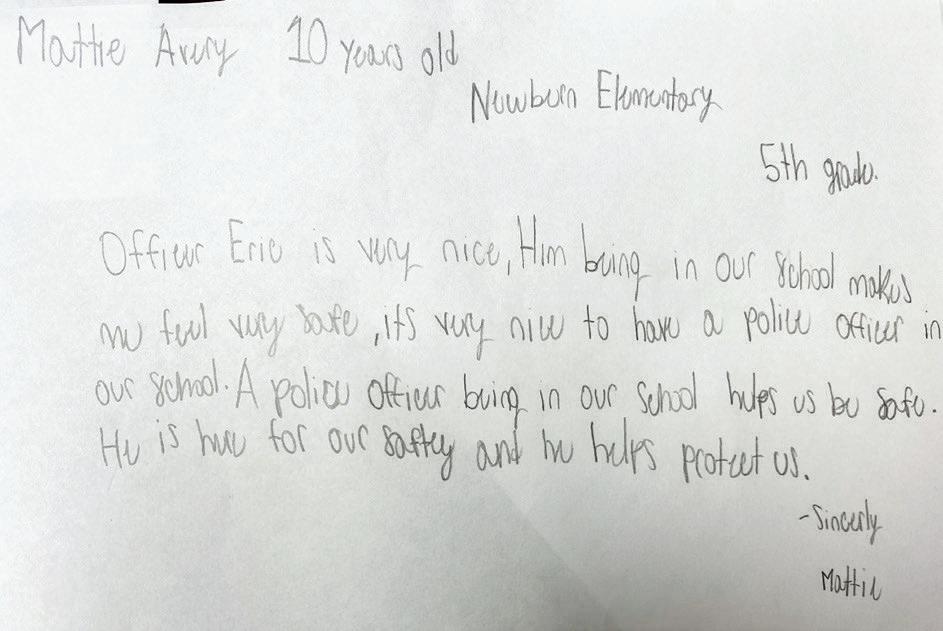 Mattie Avery 10 years old
Newbern Elementary
5th grade.
Officer Eric is very nice, Him being in our school makes
me feel very safe, it's very nice to have a police officer in
our school. A police officer being in our school helps us be safe.
He is here for our saftey and he helps protect us.
-Sincerly
Mattie